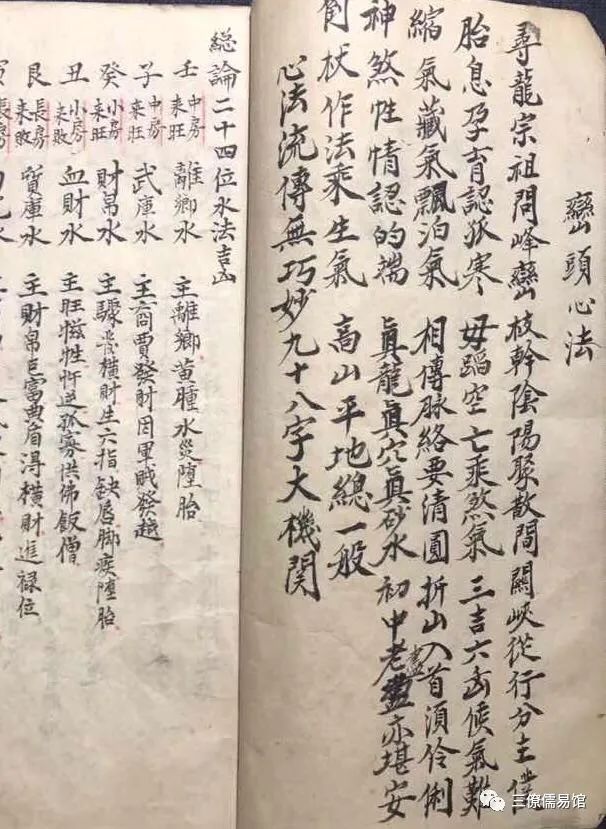 巒頭心法
尋龍宗祖問峰巒 枝幹陰陽聚散間 關峽從行分主僕
胎息孕育認孤寒 毋蹈空亡乘煞氣 三吉六凶候氣難
縮氣藏氣飄泊氣 相傳脉絡要清圓 折山入首須伶俐
神煞性情認的端 真龍真穴真砂水 初中老盡亦堪安
倒杖作法乘生氣 高山平地總一般
心法流傳無巧妙 九十八字大機関
総論二十四位水法吉凶
壬 中房来旺 離鄉水 主離鄉黄腫水災墮胎
子 中房来旺 武庫水 主商賈發財因軍賊發越
癸 小房来旺 財帛水 主驟發橫財生六指缺唇脚疾墮胎
丑 小房来敗 血財水 主旺牲忤逆孤寡供佛飯僧
艮 長房来敗 庫水 主財帛巨富曲眉淂橫財進禄位
寅 長房来敗
三僚儒易馆